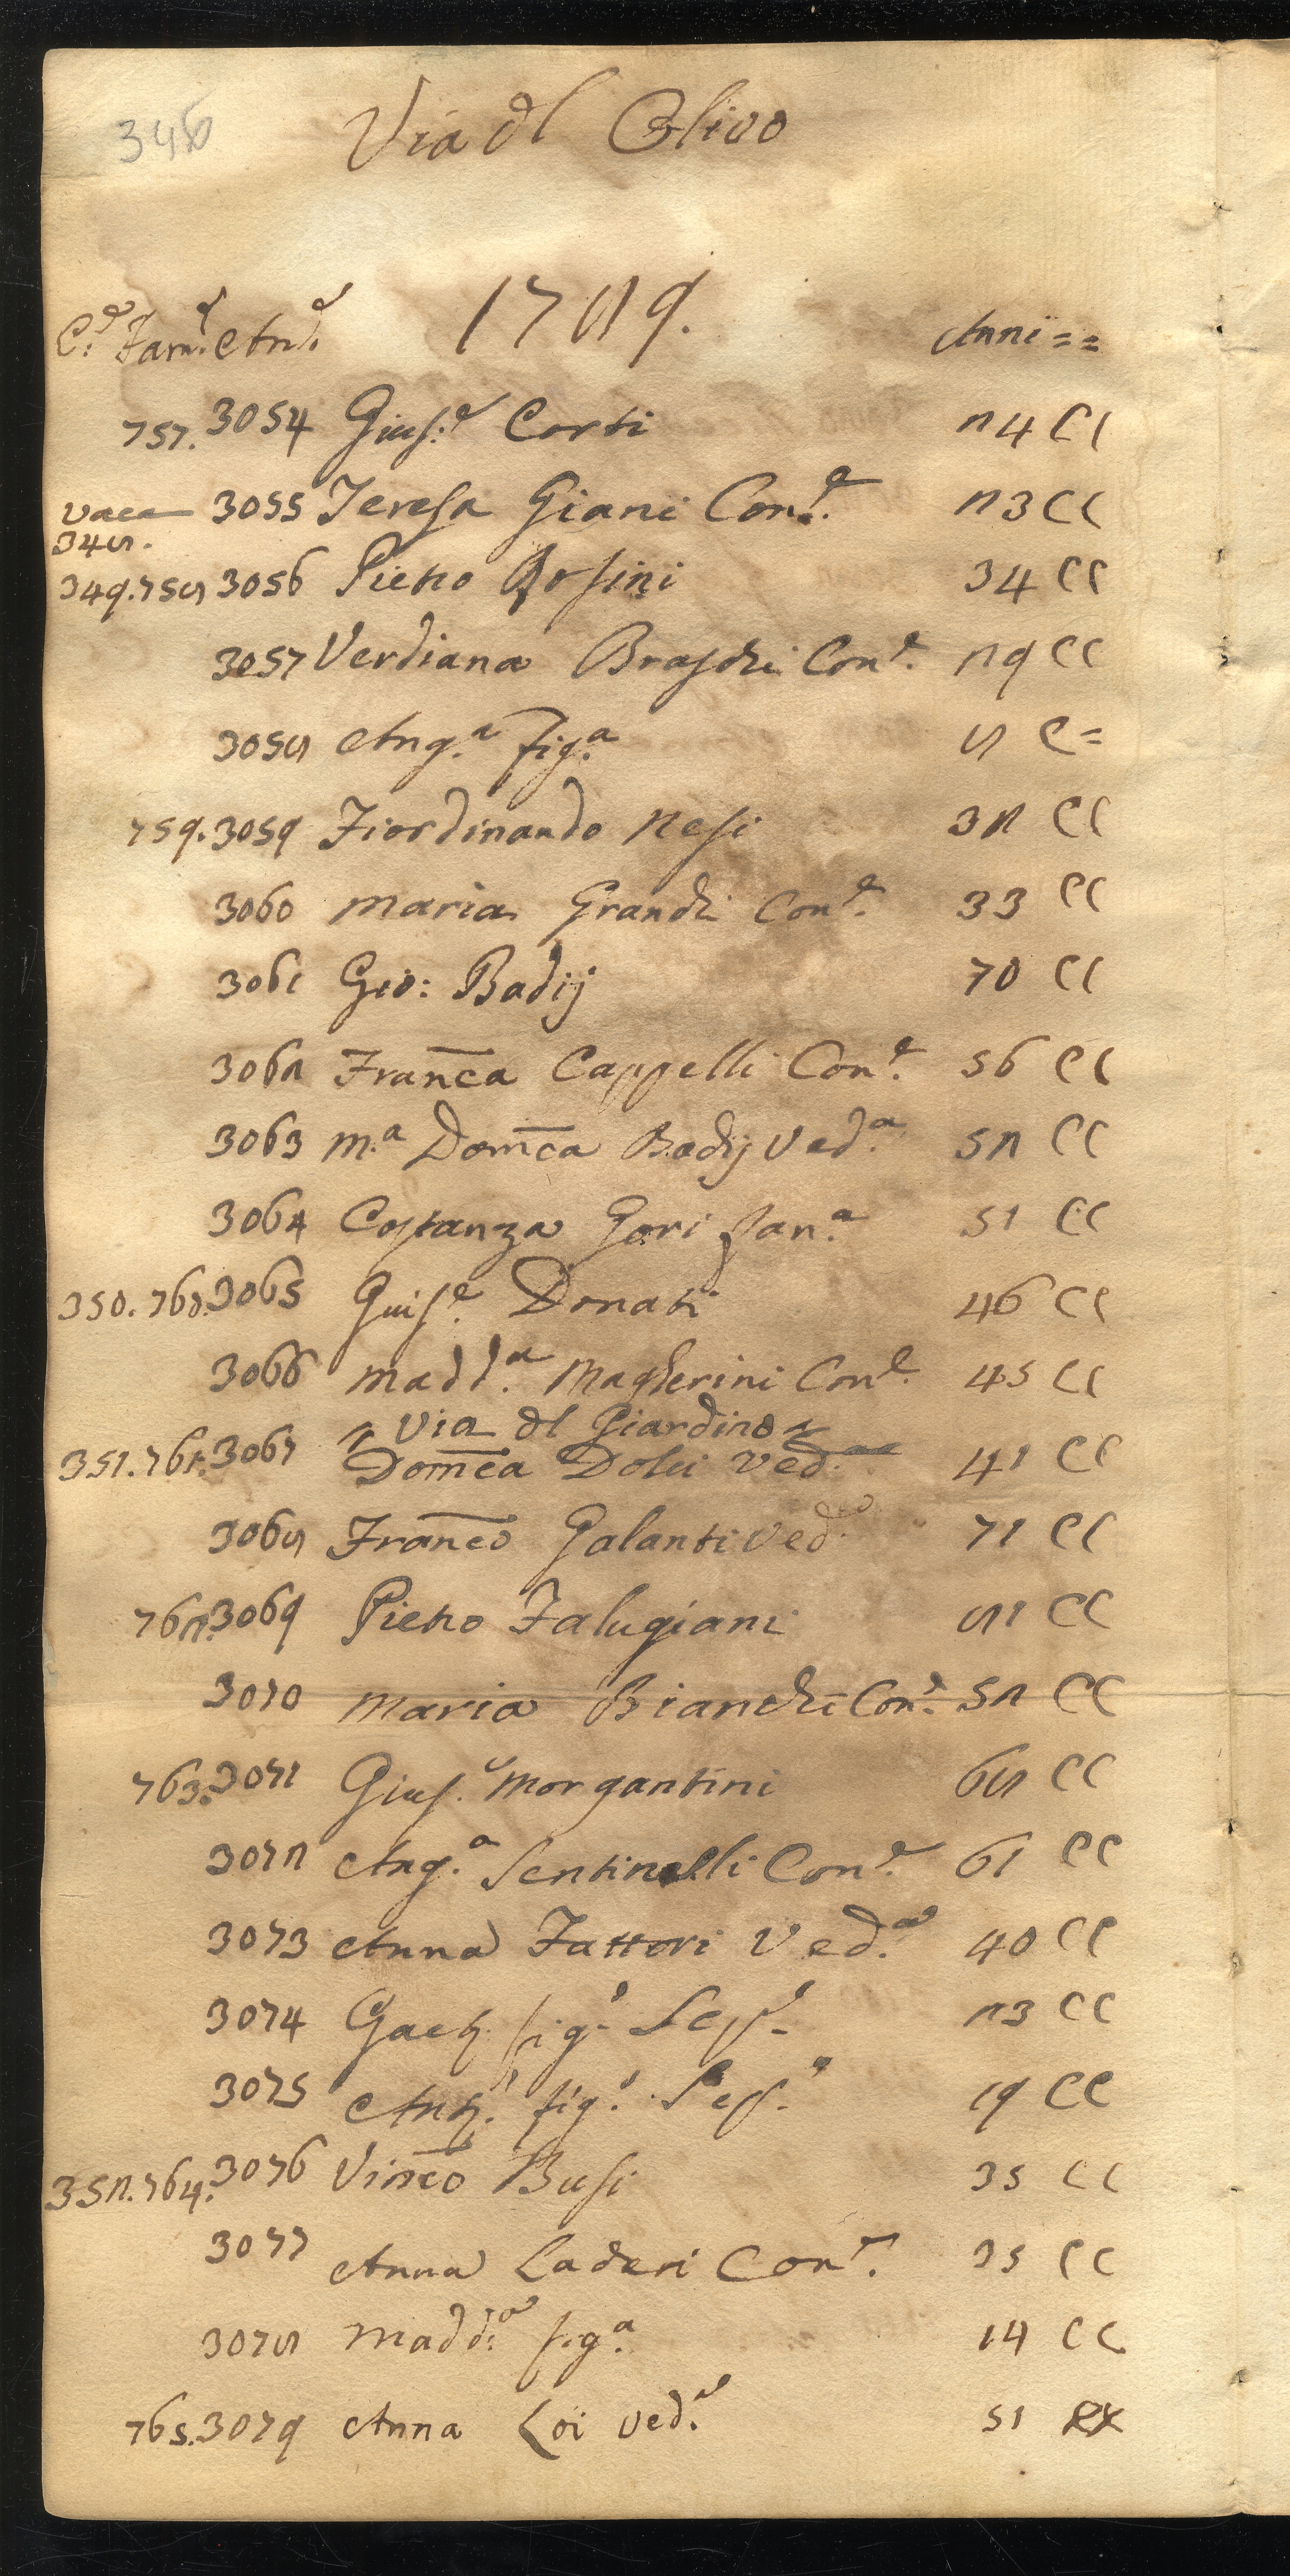 Via dl Olivo
1789.
C.e Fam.e And.e Anni = =
757. 3054 Gius.e Corti 24 CC
vaca 3055 Teresa Giani Con.e 23 CC
348.
349.758 3056 Pietro Orsini 34 CC
3057 Verdiana Braschi Con.e 29 CC
3058 Ang.a fig.a 8 C=
759. 3059 Fiordinando Nesi 32 CC
3060 Maria Grandi Con.e 33 CC
3061 Gio: Badij 70 CC
3062 Franca Cappelli Con.e 56 CC
3063 M.a Domca Badij Ved.a 52 CC
3064 Costanza Gori fan.a 51 CC
350. 760. 3065 Guis.e Donati 46 CC
3066 Madd.a Magherini Con.e 45 CC
Via dl Giardino
351. 761. 3067 Domca Dolci Ved.a 41 CC
3068 Franco Galanti Ved.o 71 CC
762. 3069 Pietro Falugiani 81 CC
3070 Maria Bianchi Con.e 52 CC
763. 3071 Gius.e Morgantini 68 CC
3072 Ang.a Sentinelli Con.e 61 CC
3073 Anna Fattori Ved.a 40 CC
3074 Gaet. fig.o 23 CC
3075 Ant.o fig.o 19 CC
352. 764. 3076 Vinco Busi 35 CC
3077 Anna Laderi Con.e 35 CC
3078 Madd.a fig.a 14 CC
765. 3079 Anna Loi Ved.a 51